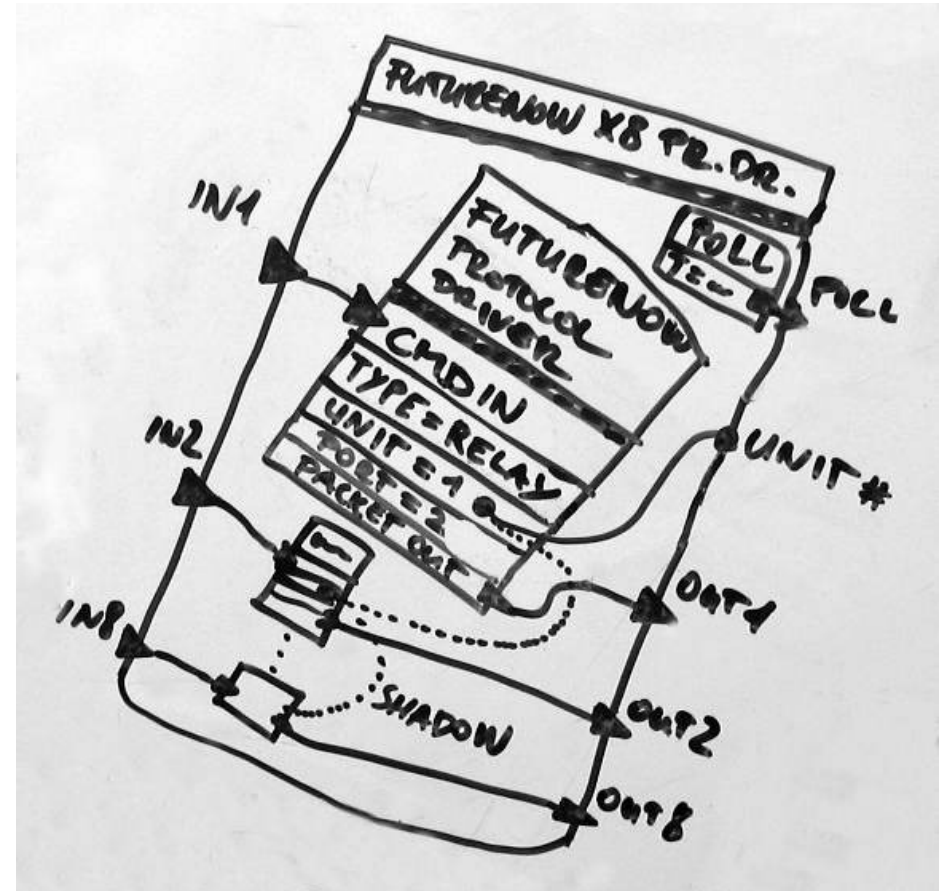 FUTURENOW X8 PR.DR.
IN1
FUTURENOW
PROTOCOL
DRIVER
POLL
POLL
CMD IN
TYPE=RELAY
UNIT=1
PORT=2
PACKET OUT
UNIT #
IN2
OUT1
IN8
SHADOW
OUT2
OUT8